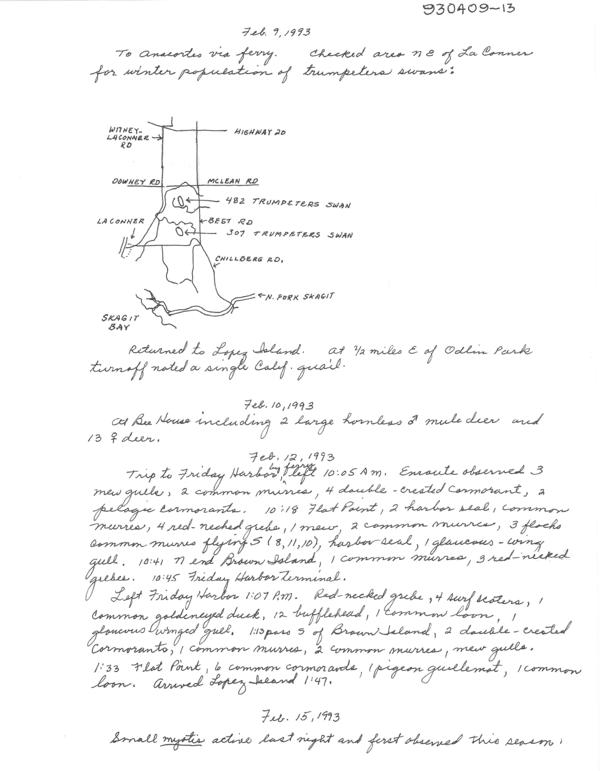 930409-13
Feb. 9, 1993
To Anacortes via ferry. Checked area NE of La Conner
for winter population of trumpeters swans:
WITNEY-
LACONNER
RD
HIGHWAY 20
DOWNEY RD
MCLEAN RD
482 TRUMPETERS SWAN
LACONNER
BEET RD
307 TRUMPETERS SWAN
CHILLBERG RD.
N. FORK SKAGIT
SKAGIT
BAY
Returned to Lopez Island. At 1/2 miles E of Odlin Park
turnoff noted a single Calif. quail.
Feb. 10, 1993
At Bee House including 2 large hornless ♂ mule deer and
13 ♀ deer.
Feb. 12, 1993
Trip to Friday Harbor by ferry left 10:05 AM. Enroute observed 3
mew gulls, 2 common murres, 4 double-crested cormorant, 2
pelagic cormorants. 10:18 Flat Point, 2 harbor seal, common
murres, 4 red-necked grebe, 1 mew, 2 common murres, 3 flocks
common murres flying S (8,11,10), harbor seal, 1 glaucous-wing
gull. 10:41 N end Brown Island, 1 common murres, 3 red-necked
grebes. 10:45 Friday Harbor Terminal.
Left Friday Harbor 1:07 P.M. Red-necked grebe, 4 surf scoters, 1
common goldeneyed duck, 12 bufflehead, 1 common loon, 1
glaucous winged gull. 1:13 pass S of Brown Island, 2 double-crested
cormorants, 1 common murres, 2 common murres, mew gulls.
1:33 Flat Point, 6 common cormorants, 1 pigeon guillemot, 1 common
loon. Arrived Lopez Island 1:47.
Feb. 15, 1993
Small myotis active last night and first observed this season.